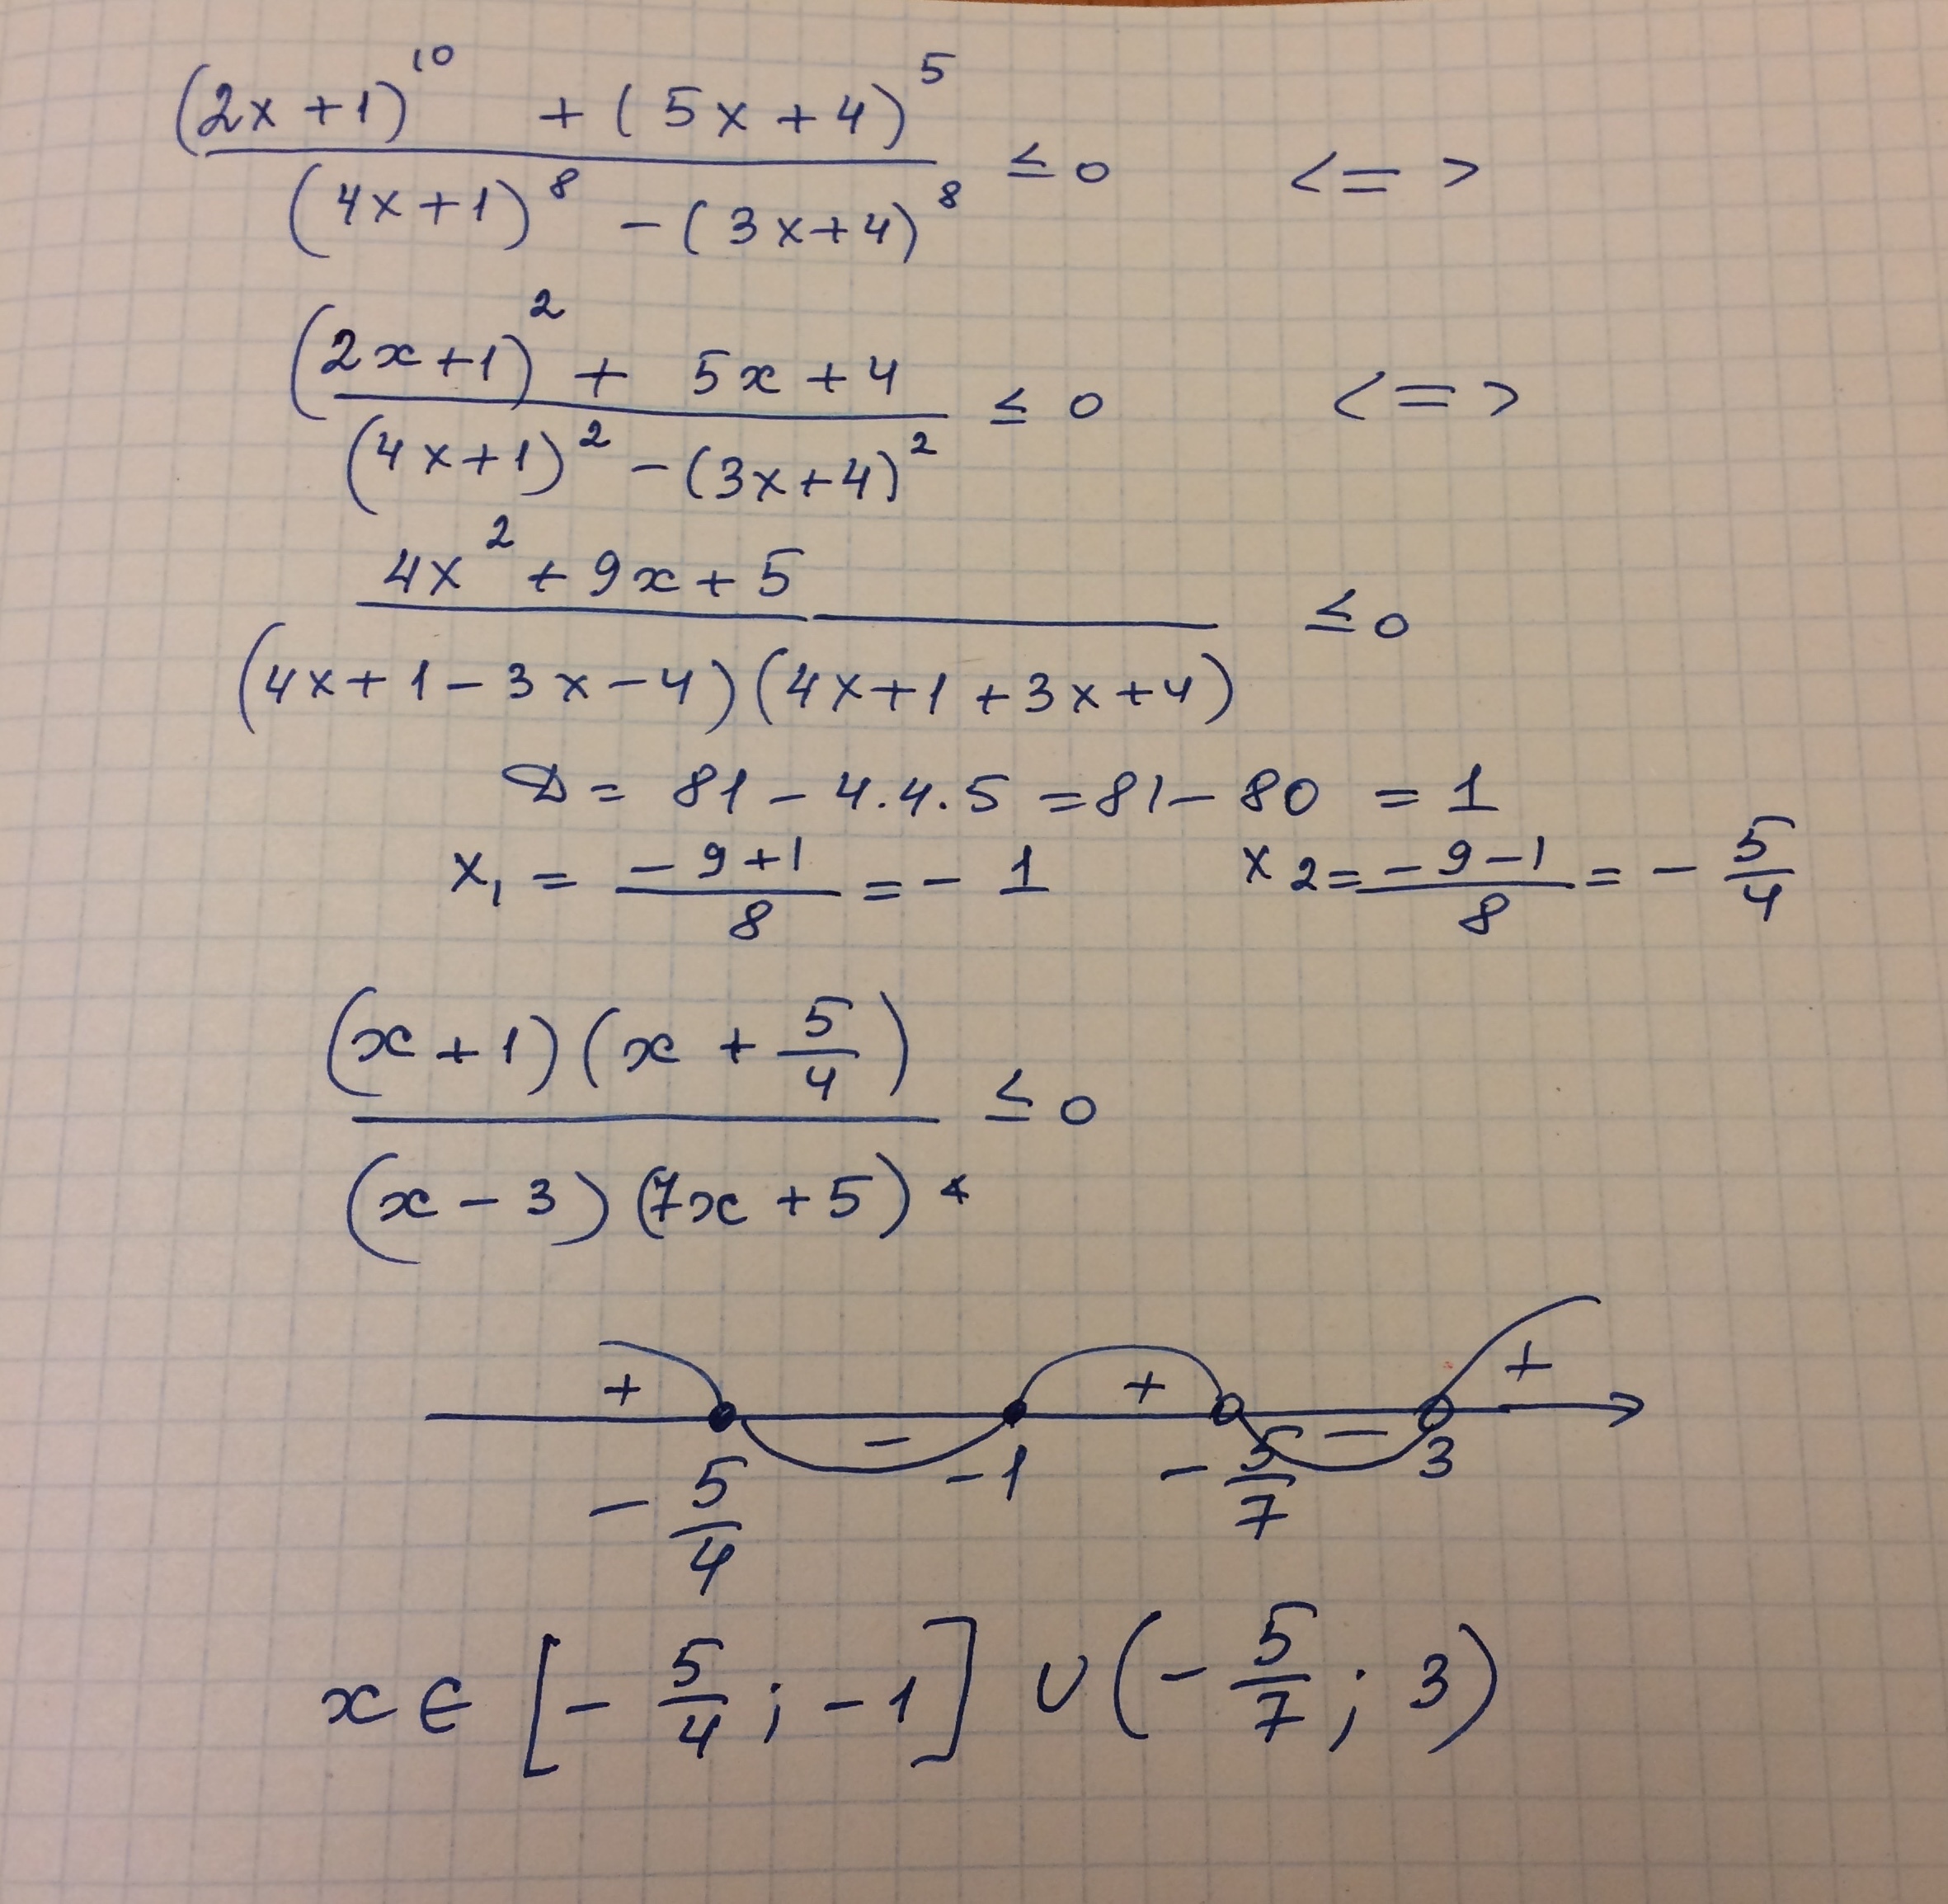 (2x+1)^10 + (5x+4)^5 / (4x+1)^8 - (3x+4)^8 ≤ 0 <=>
(2x+1)^2 + 5x+4 / (4x+1)^2 - (3x+4)^2 ≤ 0 <=>
4x^2 + 9x + 5 / (4x+1-3x-4)(4x+1+3x+4) ≤ 0
D = 81 - 4.4.5 = 81 - 80 = 1
x₁ = -9+1 / 8 = -1 x₂ = -9-1 / 8 = - 5/4
(x+1)(x + 5/4) / (x-3)(7x+5) ≤ 0
+ - + - +
- 5/4 -1 - 5/7 3
x ∈ [- 5/4 ; -1] ∪ (- 5/7 ; 3)